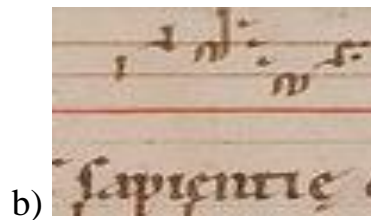 b) sapientię